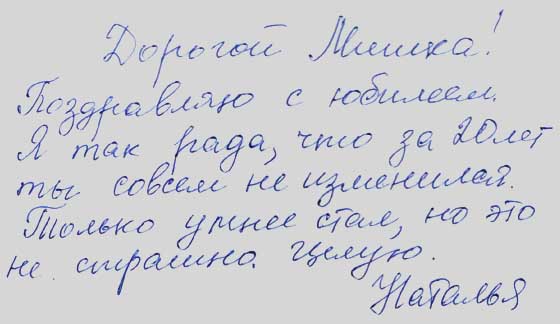 Дорогой Мишка!
Поздравляю с юбилеем.
Я так рада, что за 20 лет
ты совсем не изменился.
Только умнее стал, но это
не страшно. Целую.
Наталья